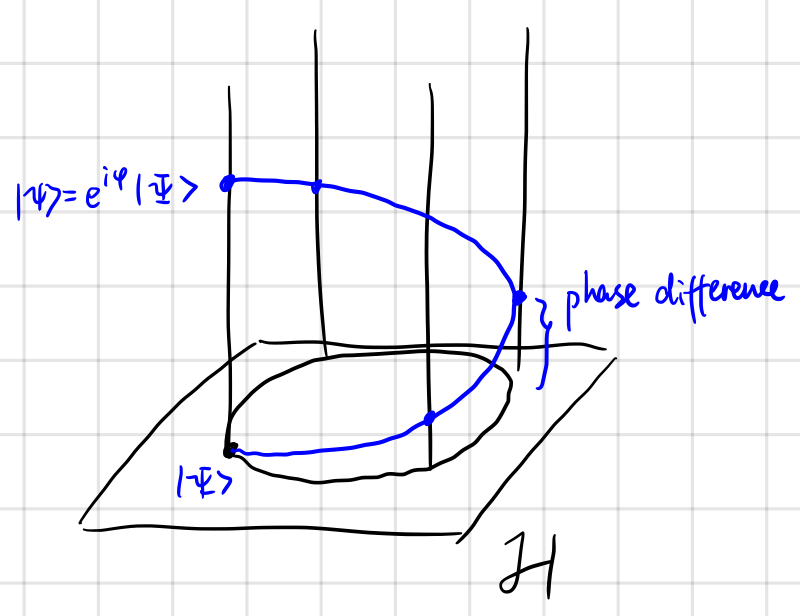 |ψ> = e^{iφ} |Ψ>
phase difference
|Ψ>
H